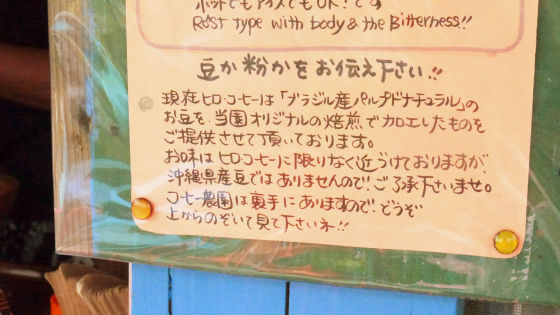 ホットでもアイスでもOK!です
Rost type with body & the Bitterness!!
豆か粉かをお伝え下さい!!
現在ヒロ・コーヒーは「ブラジル産パルプドナチュラル」の
お豆を、当園オリジナルの焙煎で加工したものを
ご提供させて頂いております。
お味はヒロコーヒーに限りなく近づけておりますが、
沖縄県産豆ではありませんので!ご了承下さいませ。
コーヒー農園は裏手にありますので!どうぞ
上からのぞいて見て下さいネ!!